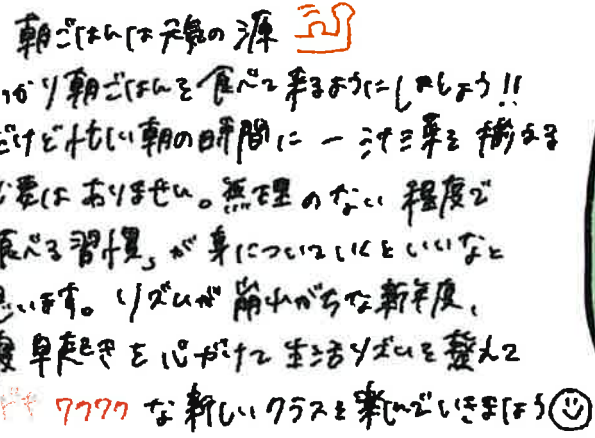 朝ごはんは元気の源
つかり朝ごはんを食べて来るようにしましょう!!
だけど忙しい朝の時間に一汁三菜を構える
必要はありません。無理のない程度で
食べる習慣が身についていくといいなと
思います。リズムが崩れがちな新年度、
早起きを心がけて生活リズムを整えて
ワクワクな新しいクラスを楽しんでいきましょう